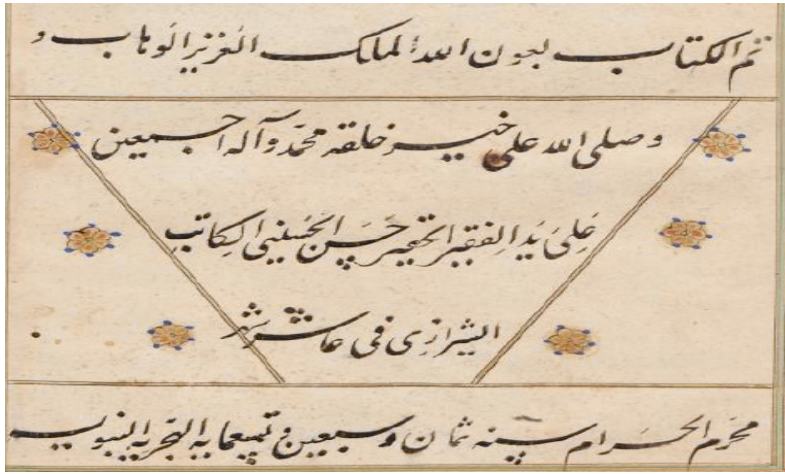 تم الكتاب بعون الله الملك العزيز الوهاب و
وصلى الله على خير خلقه محمد وآله اجمعين
عَلىٰ يَدِ الفقير الحقير حَسَن الحُسيني الكاتب
الشيرازي في عاشر شهر
محرم الحرام سنه ثمان و سبعين و تسعمايه الهجريه النبويه